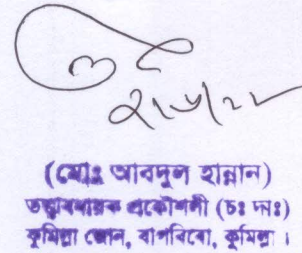 (মোঃ আবদুল হান্নান)
তত্ত্বাবধায়ক প্রকৌশলী (চঃ দাঃ)
কুমিল্লা জোন, বাপবিবো, কুমিল্লা ।